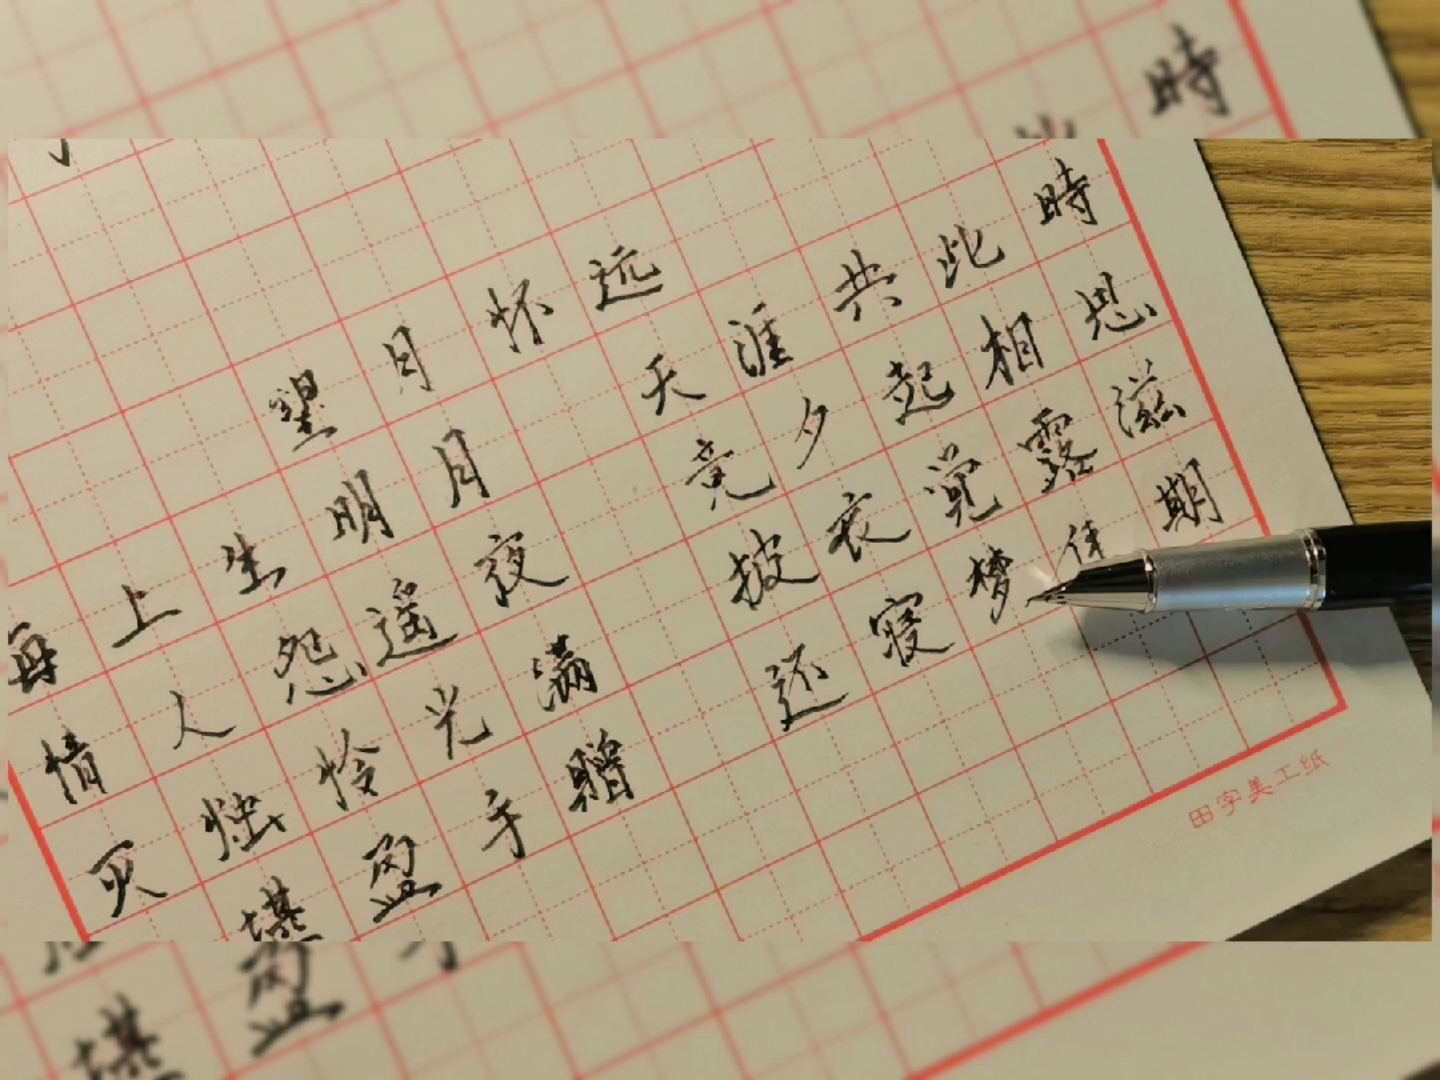 望月怀远
海上生明月 天涯共此時
情人怨遥夜 竟夕起相思
灭烛怜光满 披衣觉露滋
堪盈手贈 还寝梦佳期
田字美工纸